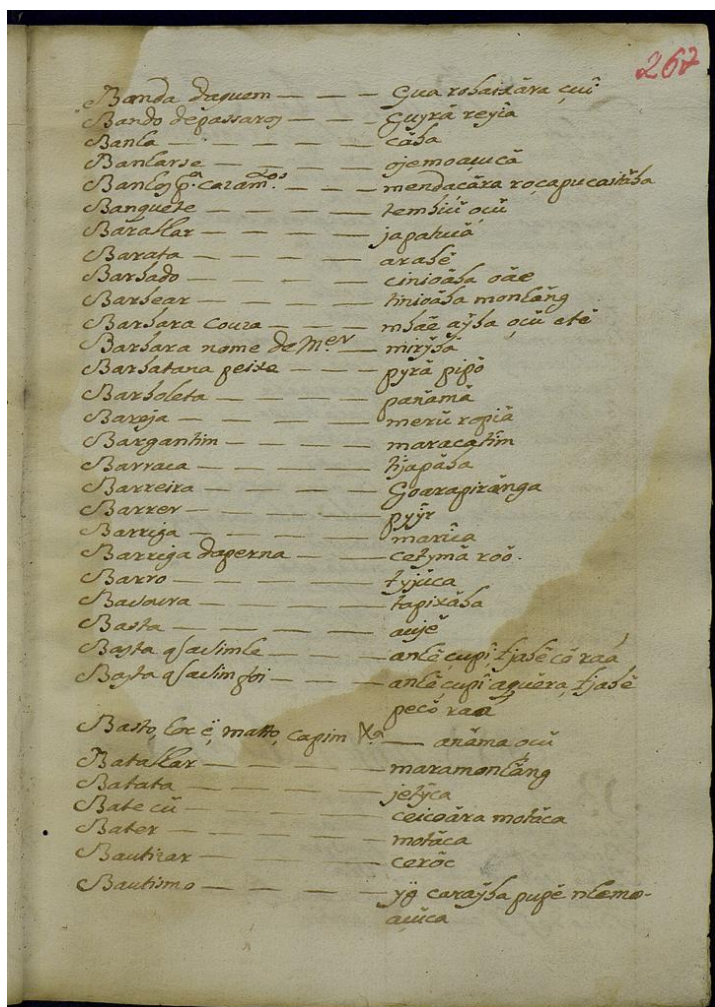 267
Banda daquem — — — Gua robaixára çuí
Bando de passaros — — — Guyrá reyía
Banha — — — — cába
Banharse — — — — ojemoajucá
— — — mendaçára
Banquete — — — — tembiú oçú
Baralhar — — — —
Barata — — — — arabé
Barbado — — — —
Barbear — — — — monháng
Barbara couza — — — mbáe aýba oçú eté
Barbara nome de M.er — mirýbá
Barbatana peixe — — — pyrá pipó
Barboleta — — — — panãmá
Bareja — — — — merú ropiá
Bargantim — — — — maracatim
Barraca — — — — tjapába
Barreira — — — — Goarapiránga
Barrer — — — — pyýr
Barriga — — — — maríca
Barriga da perna — — — cetymá roó.
Barro — — — — tyjúca
Basoura — — — — tapixába
Basta — — — — aujé
Basta q' assim he — — — anhé çupí, tjabé có raá
Basta q' assim foi — — — anhé çupí aquéra, tjabé
pecó raá
Basto, hoc é, matto, capim — anáma oçú
Batalhar — — — — maramonháng
Batata — — — — jetýca
Bate cú — — — — ceicoára motáca
Bater — — — — motáca
Bautizar — — — — ceróc
Bautismo — — — — yg caraýba pupé nhemo-
ajúca